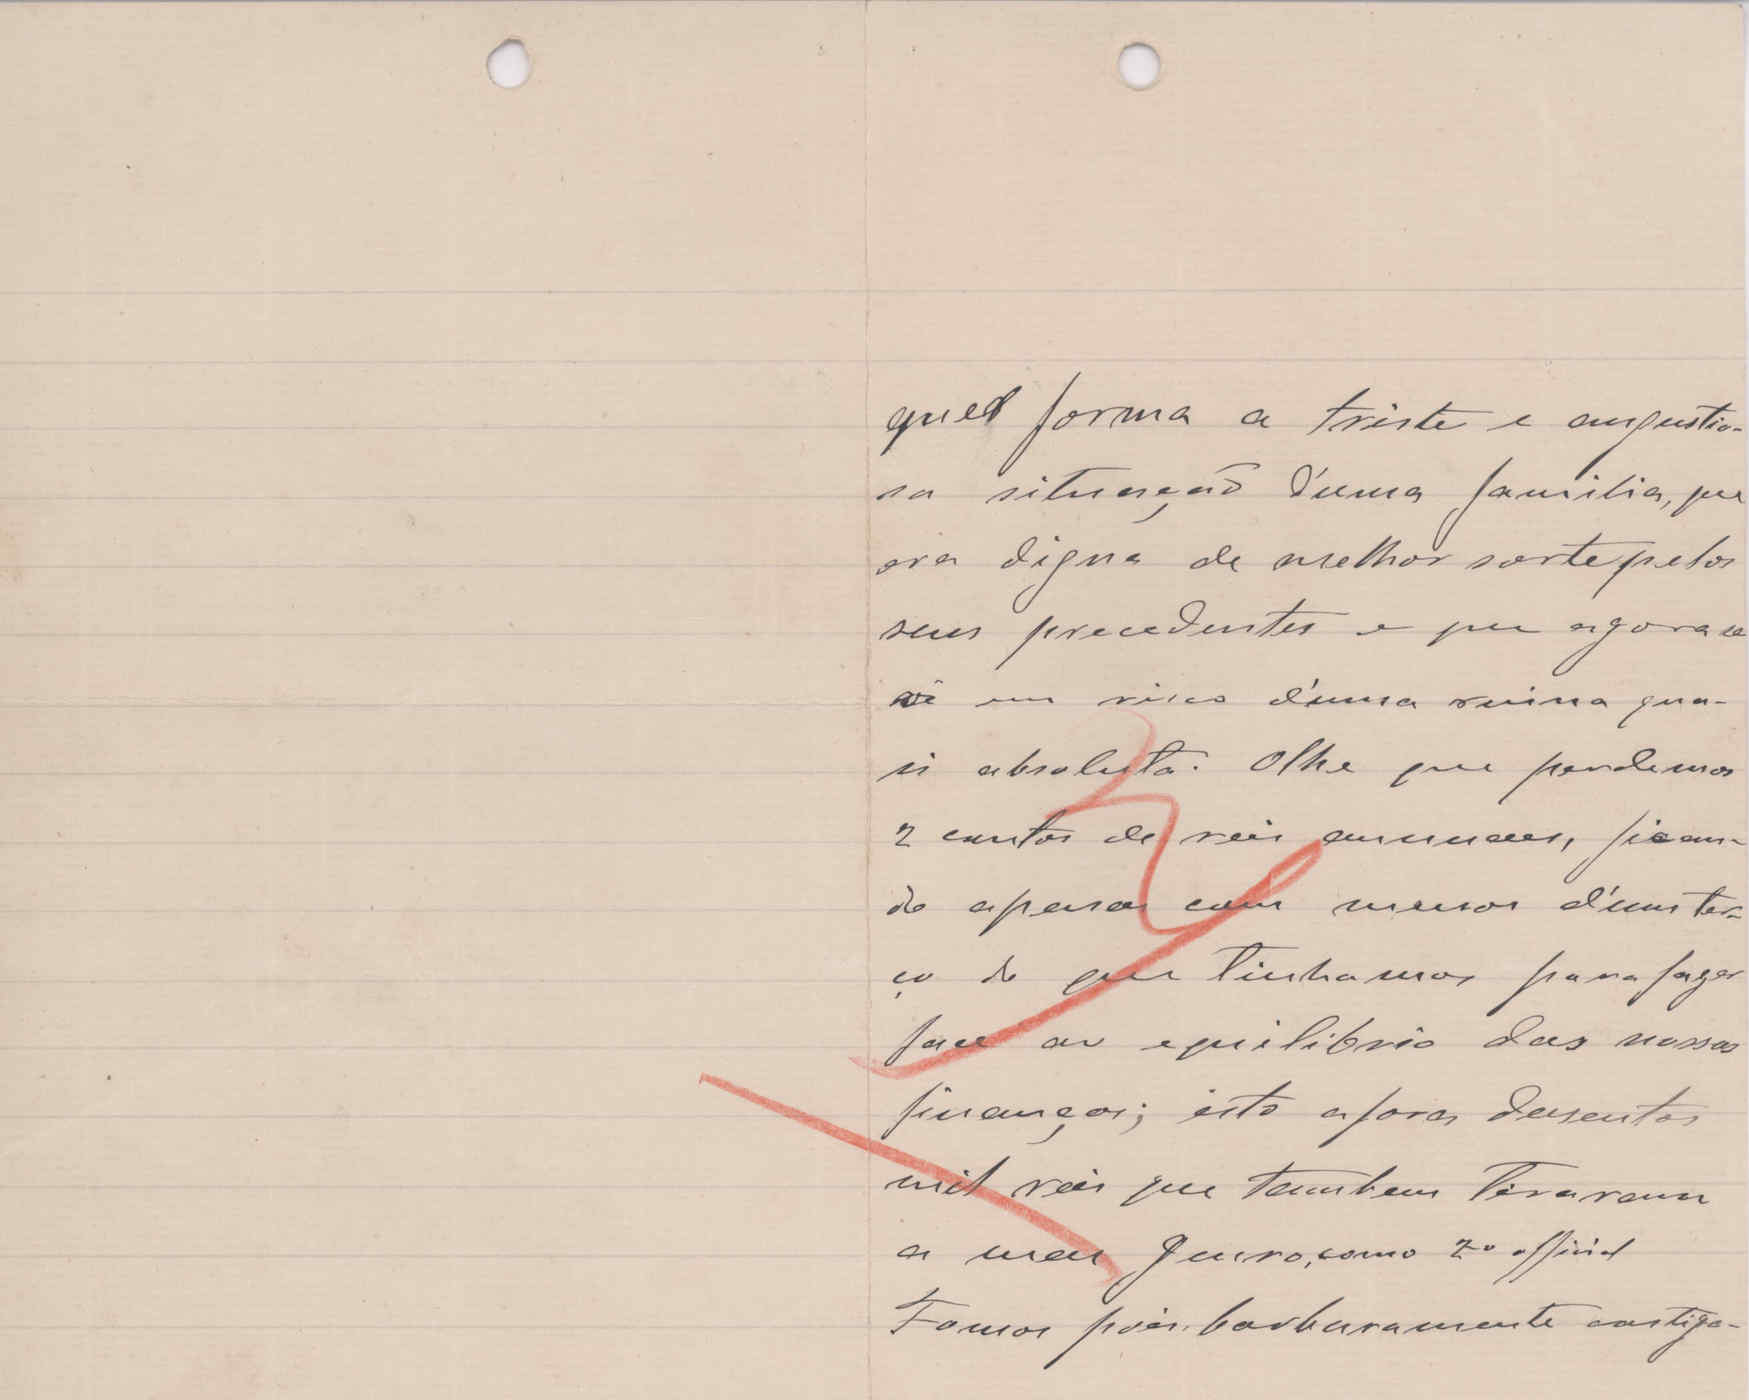 quer forma a triste e angustio-
sa situação d'uma familia, que
era digna de melhor sorte pelos
seus precedentes e que agora se
vê em risco d'uma ruina qua-
si absoluta. Olhe que perdemos
2 contos de reis annuaes, fican-
do apenas com menos d'um ter-
ço do que tinhamos para fazer
face ao equilibrio das nossas
finanças; isto afora dusentos
mil reis que tambem tiraram
a meu Genro, como 2º official
Fomos pois barbaramente castiga-